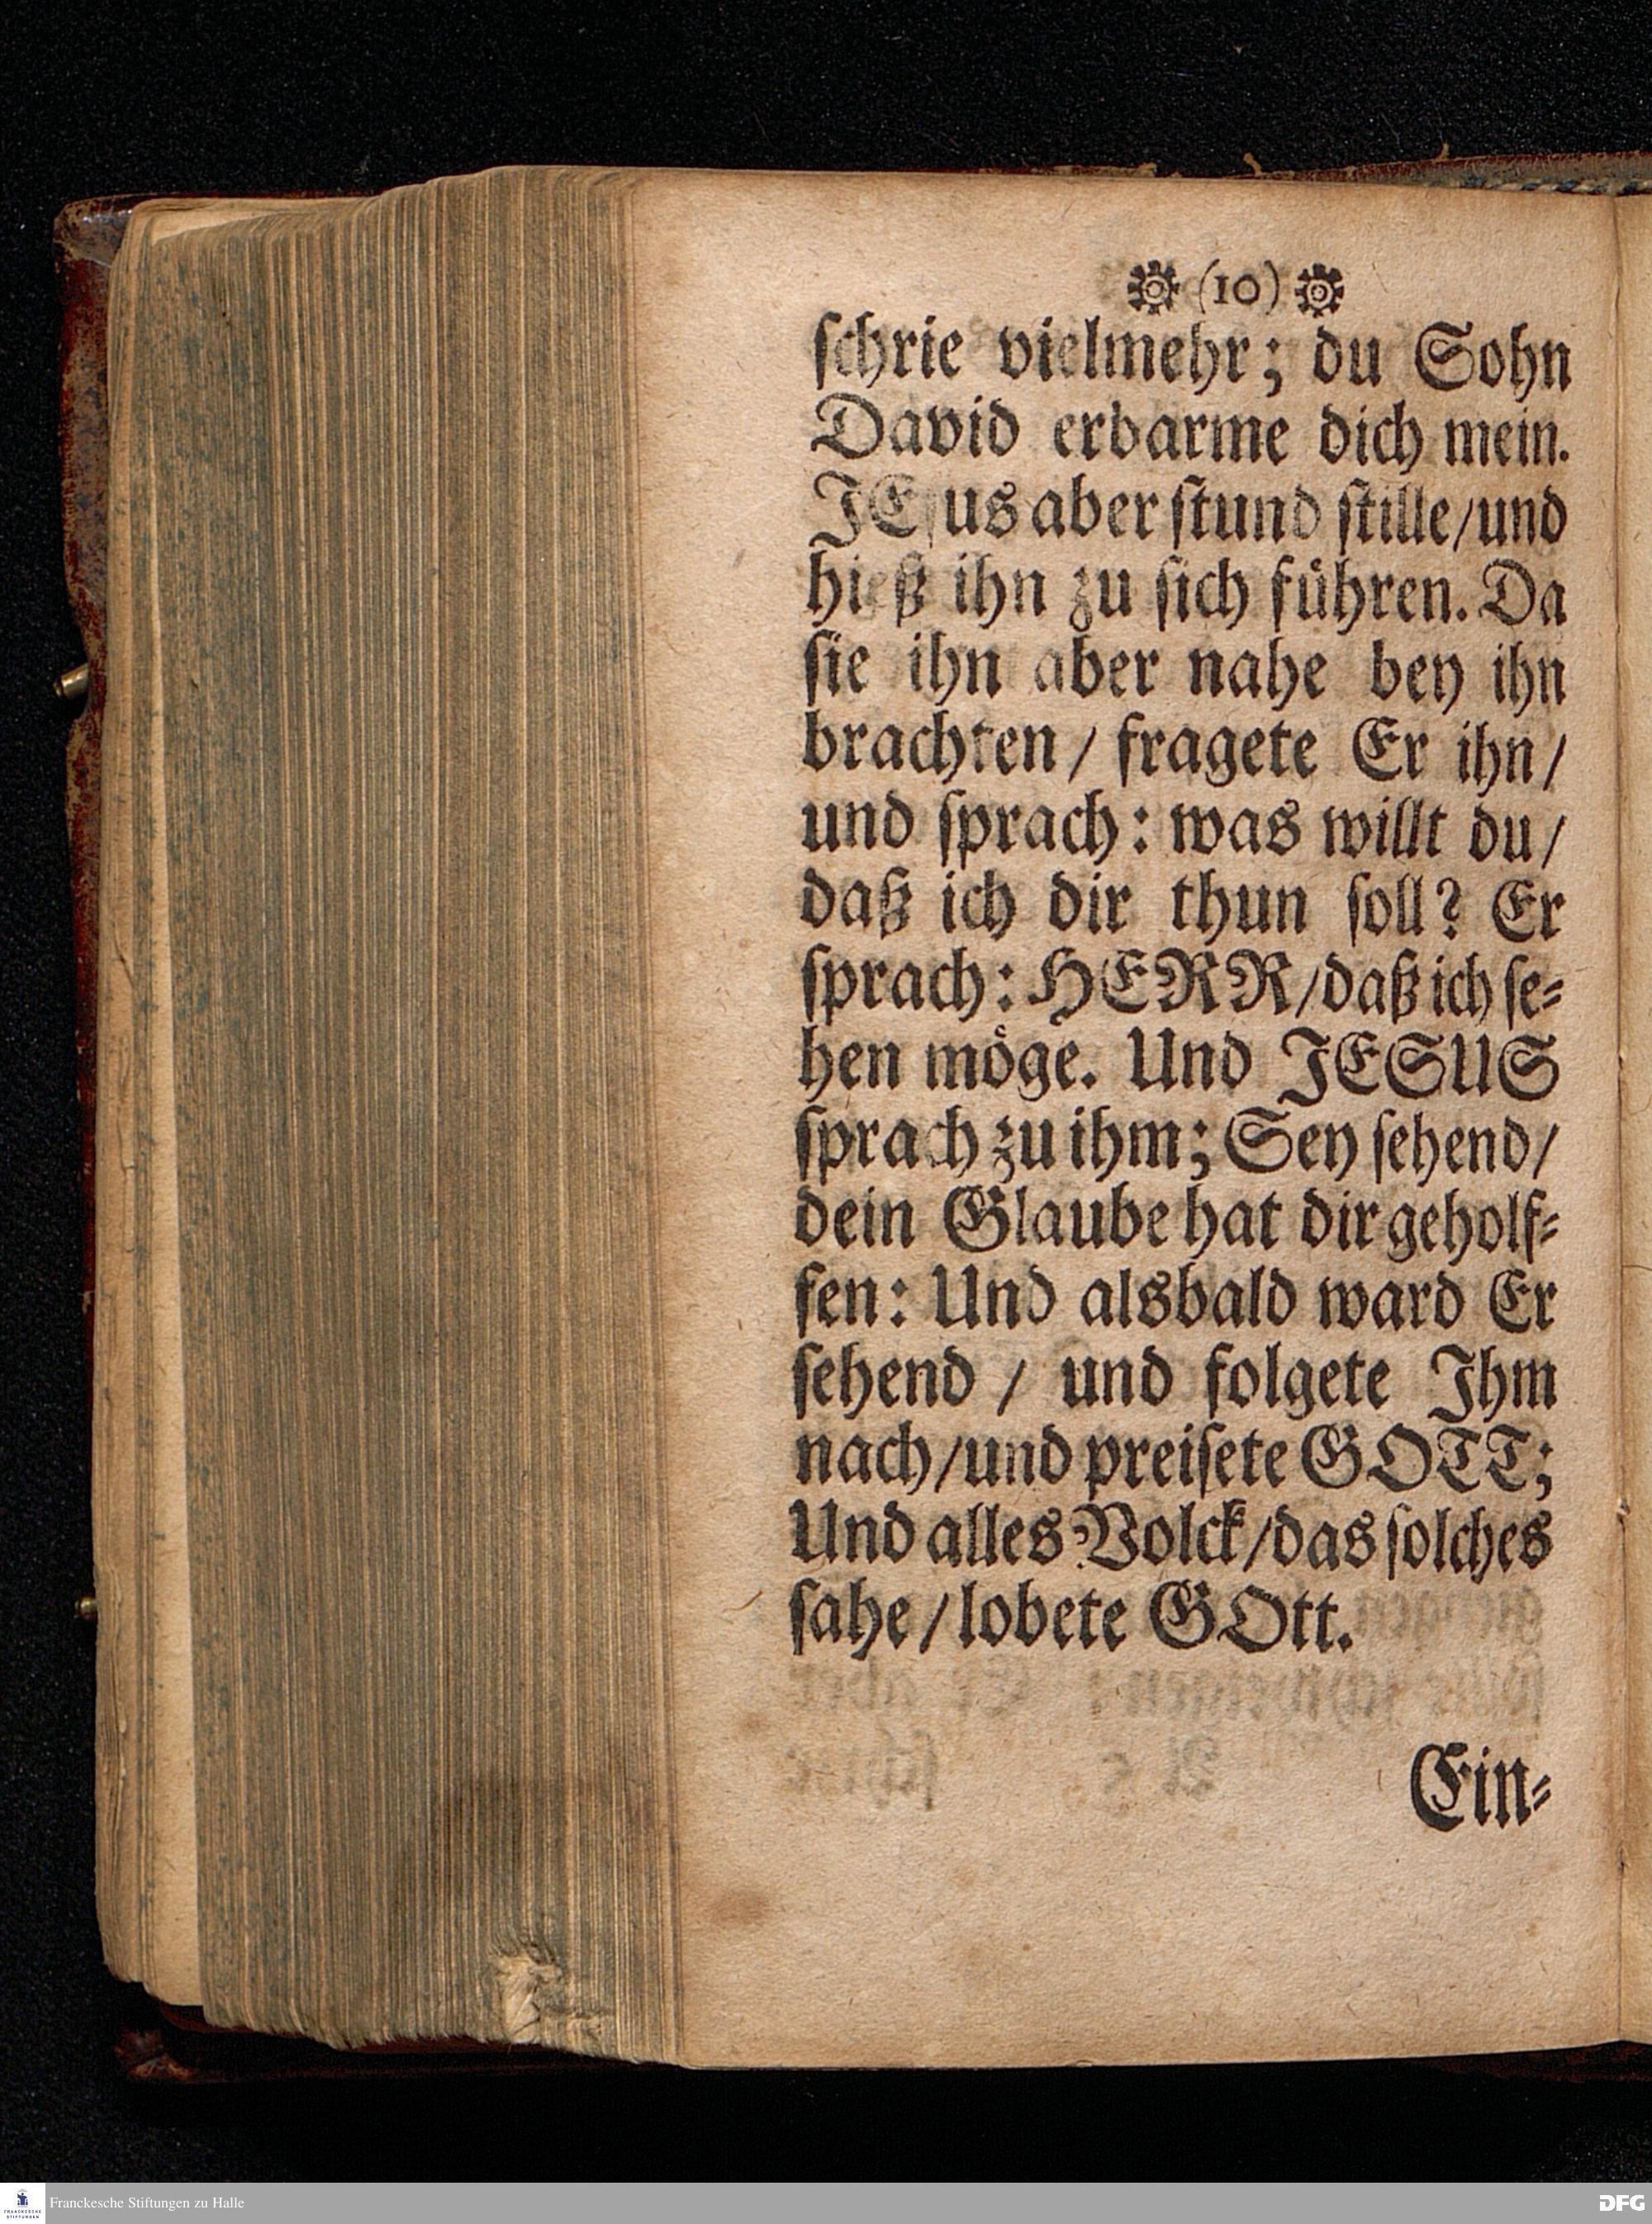 (10)
ſchrie vielmehr; du Sohn
David erbarme dich mein.
JEſus aber ſtund ſtille/und
hieß ihn zu ſich führen. Da
ſie ihn aber nahe bey ihn
brachten/ fragete Er ihn/
und ſprach: was willt du/
daß ich dir thun ſoll? Er
ſprach: HERR/daß ich ſe-
hen möge. Und JESUS
ſprach zu ihm; Sey ſehend/
dein Glaube hat dir geholf-
fen: Und alsbald ward Er
ſehend / und folgete Ihm
nach/und preiſete GOTT;
Und alles Volck/das ſolches
ſahe/lobete GOtt.
Ein-
Franckesche Stiftungen zu Halle
FRANCKESCHE
STIFTUNGEN
DFG